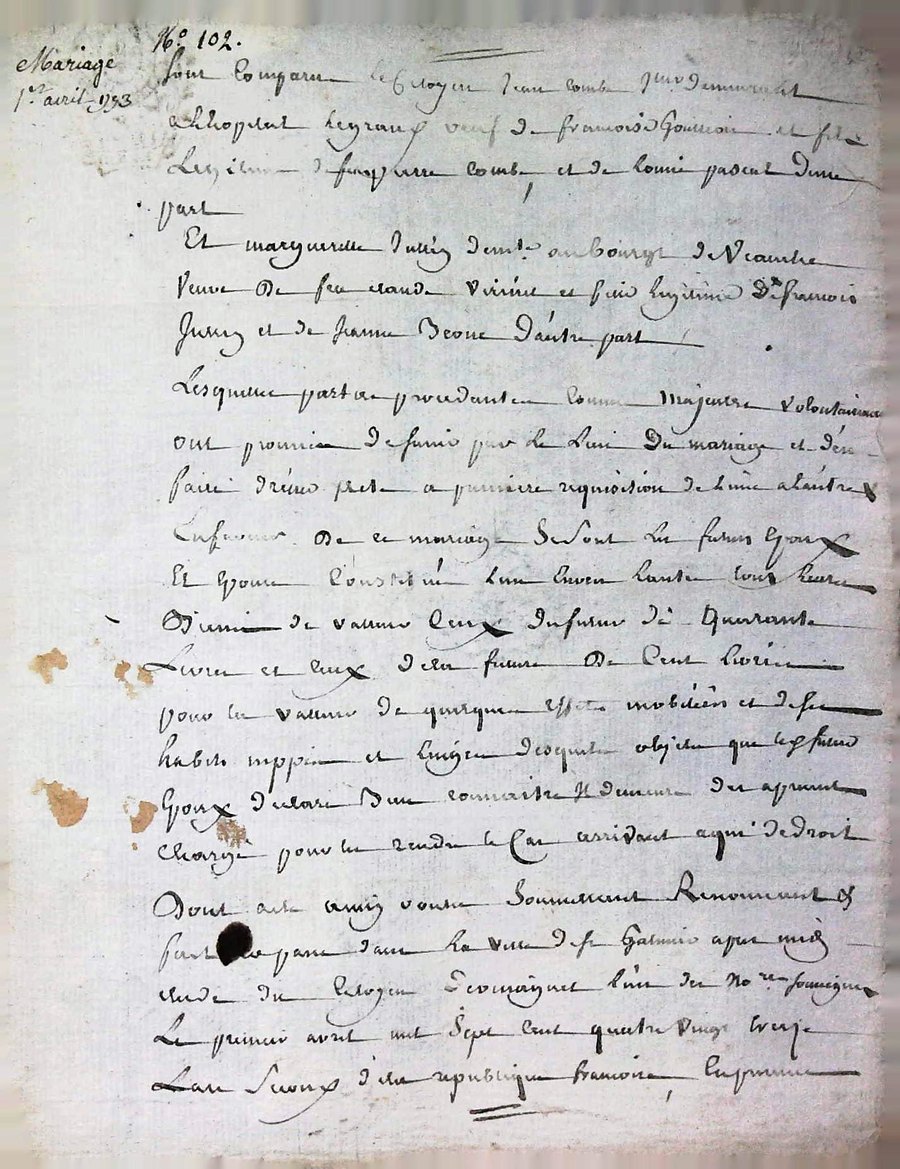 N.o 102.
Mariage
1.er avril 1793
Sont Comparu le Citoyen Jean Combe
a Lhopital Legrand veuf de francoise et fils
Legitime de feu pierre Combe et de Louise pascal dune
part
Et marguerite Jullin demte. au bourg de Veauche
Veuve De feu claude et fille legitime De francois
Jullin et de Jeanne D'autre part
Lesquelles parties procedantes comme Majeures volontairement
ont promis de sunir par Le Lien Du mariage et den
faire a premiere requisition de Lune a Lautre
En faveur De ce mariage Se Sont Les futurs Epoux
Et Epouse Constitué Lun Envers Lautre tous leurs
de valleur Ceux du futur de Quarante
Livres et Ceux de la future De Cent Livres
pour la valleur de quelques effets mobiliers et de ses
habits nippes et Linges desquels objets que le futur
Epoux declare Bien connaitre Il demeure des apresent
Chargé pour les rendre le Cas arrivant a qui de droit
Dont acte ainsi voulu Soumettant Renonceant &
fait passé dans La ville de St Galmier apres midi
etude du Citoyen L'un des No.res soussignés
Le premier avril mil Sept Cent quatre vingt treize
Lan Second de la republique francoise En presence